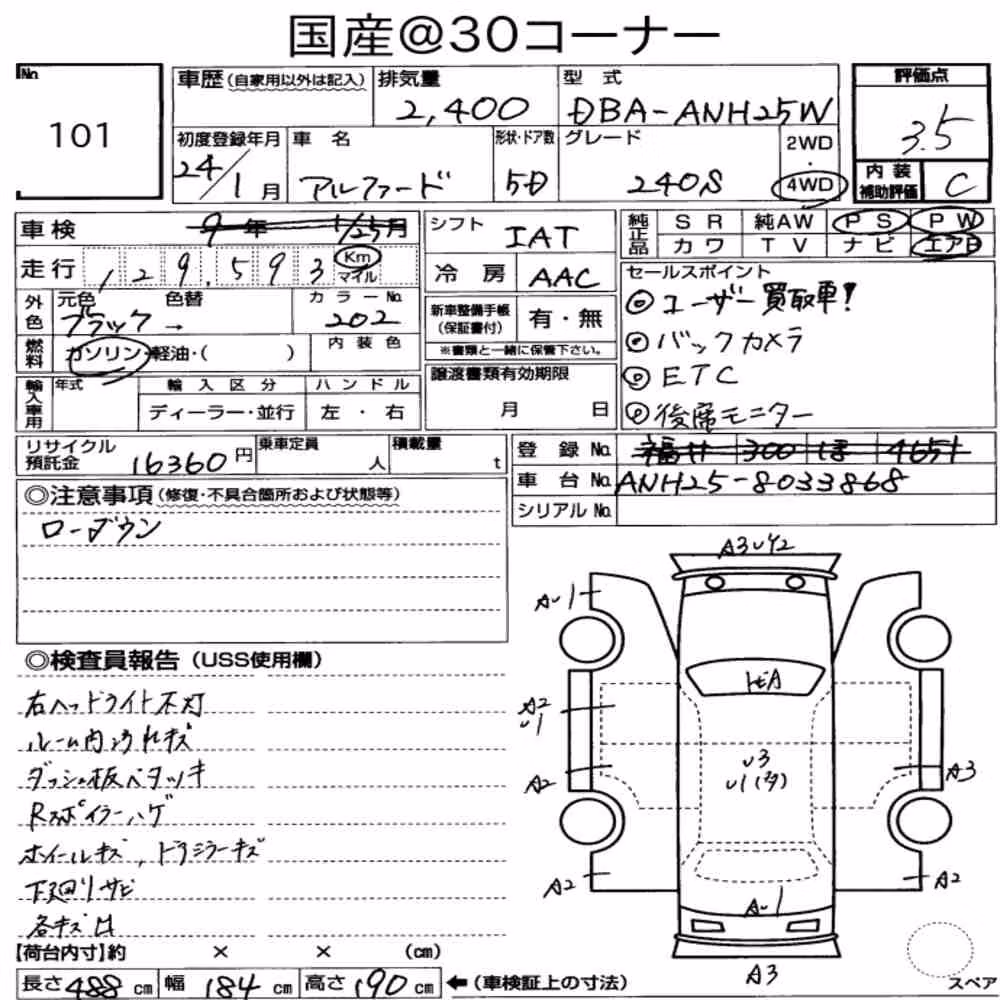 国産@30コーナー
No.
101
車歴(自家用以外は記入)
排気量
2,400
型式
DBA-ANH25W
評価点
3.5
初度登録年月
24/1月
車名
アルファード
形状・ドア数
5D
グレード
240S
2WD
・
4WD
内装
補助評価
C
車検
9年 1/25月
走行
129,593
Km
マイル
シフト
IAT
冷房
AAC
純正品
SR 純AW PS PW
カワ TV ナビ エアB
外色
元色
ブラック→
色替
カラーNo.
202
燃料
ガソリン・軽油・( )
内装色
新車整備手帳
(保証書付)
有・無
※書類と一緒に保管下さい。
セールスポイント
◎ユーザー買取車!
◎バックカメラ
◎ETC
◎後席モニター
輸入車用
年式
輸入区分
ディーラー・並行
ハンドル
左・右
譲渡書類有効期限
月 日
リサイクル
預託金
16360円
乗車定員
人
積載量
t
登録No.
福井 300 ほ 4651
車台No.
ANH25-8033868
シリアルNo.
◎注意事項(修復・不具合箇所および状態等)
ローダウン
◎検査員報告(USS使用欄)
右ヘッドライト不灯
ルーム内汚れキズ
ダッシュ板ベタツキ
Rスポイラーハゲ
ホイールキズ、ドアミラーキズ
下廻りサビ
各キズ凹
A3 U Y2
AU1
A2
U1
A2
A2
トビA
U3
U1(多)
A3
A2
AU1
A3
【荷台内寸】約 × × (cm)
長さ488cm 幅184cm 高さ190cm ←(車検証上の寸法)
スペア